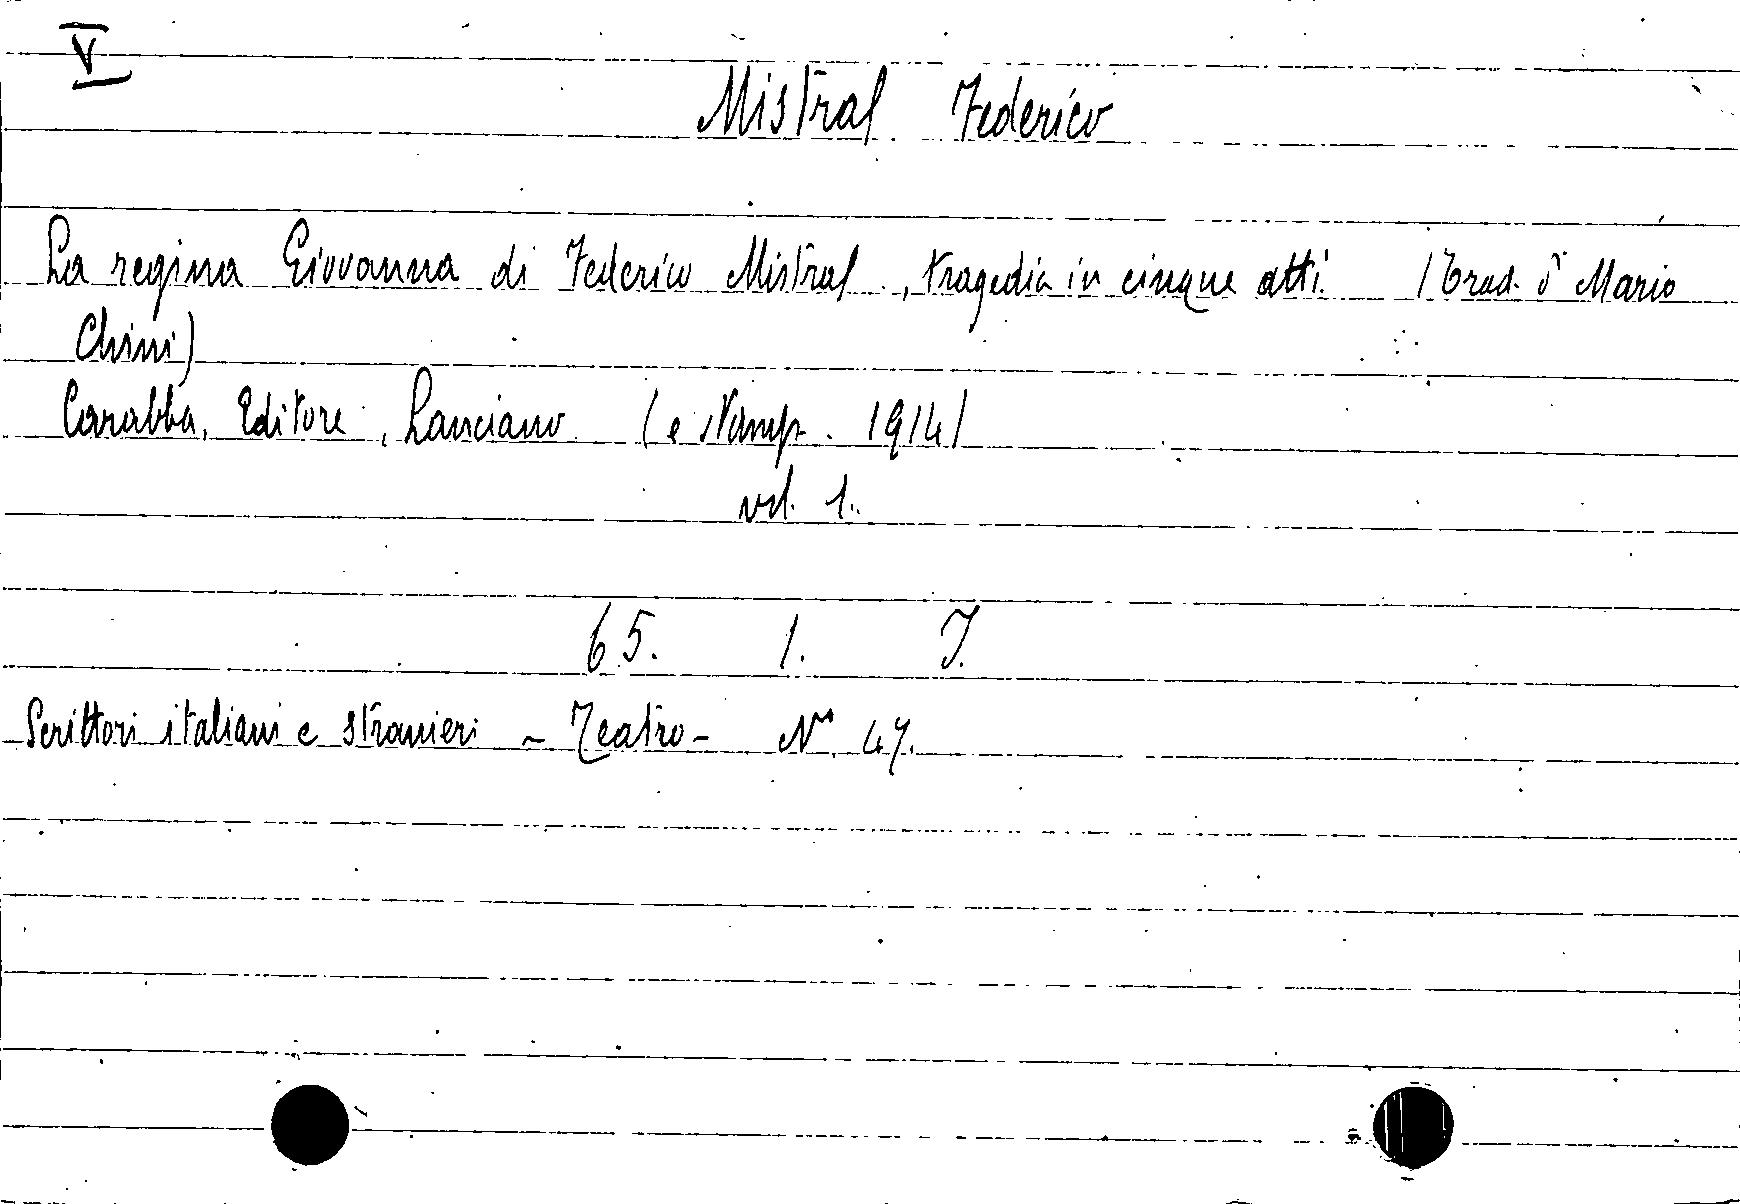 V
Mistral Federico
La regina Giovanna di Federico Mistral, tragedia in cinque atti. (Trad. di Mario
Chini)
Carabba, Editore, Lanciano (e stamp. 1914)
vol. 1.
65. 1. J.
Scrittori italiani e stranieri - Teatro - N° 47.